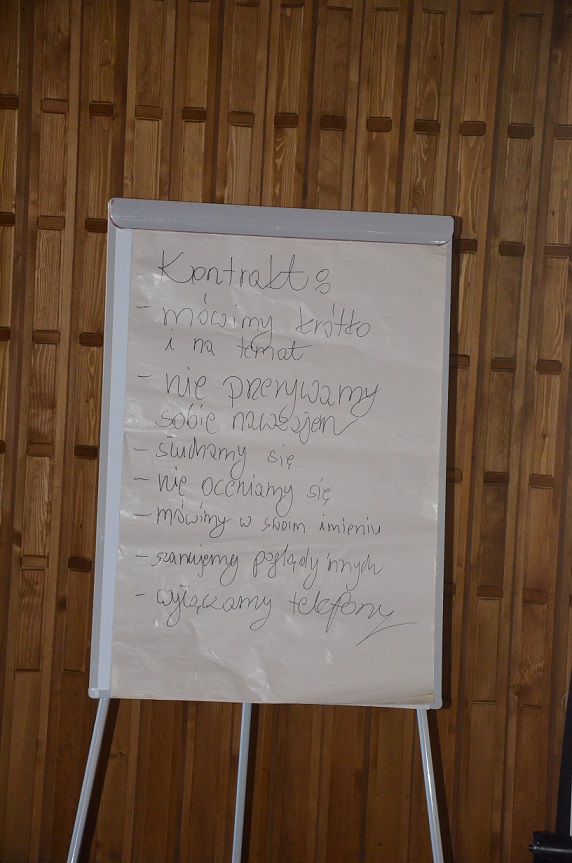 Kontrakt:
- mówimy krótko
i na temat
- nie przerywamy
sobie nawzajem
- słuchamy się
- nie oceniamy się
- mówimy w swoim imieniu
- szanujemy poglądy innych
- wyłączamy telefony